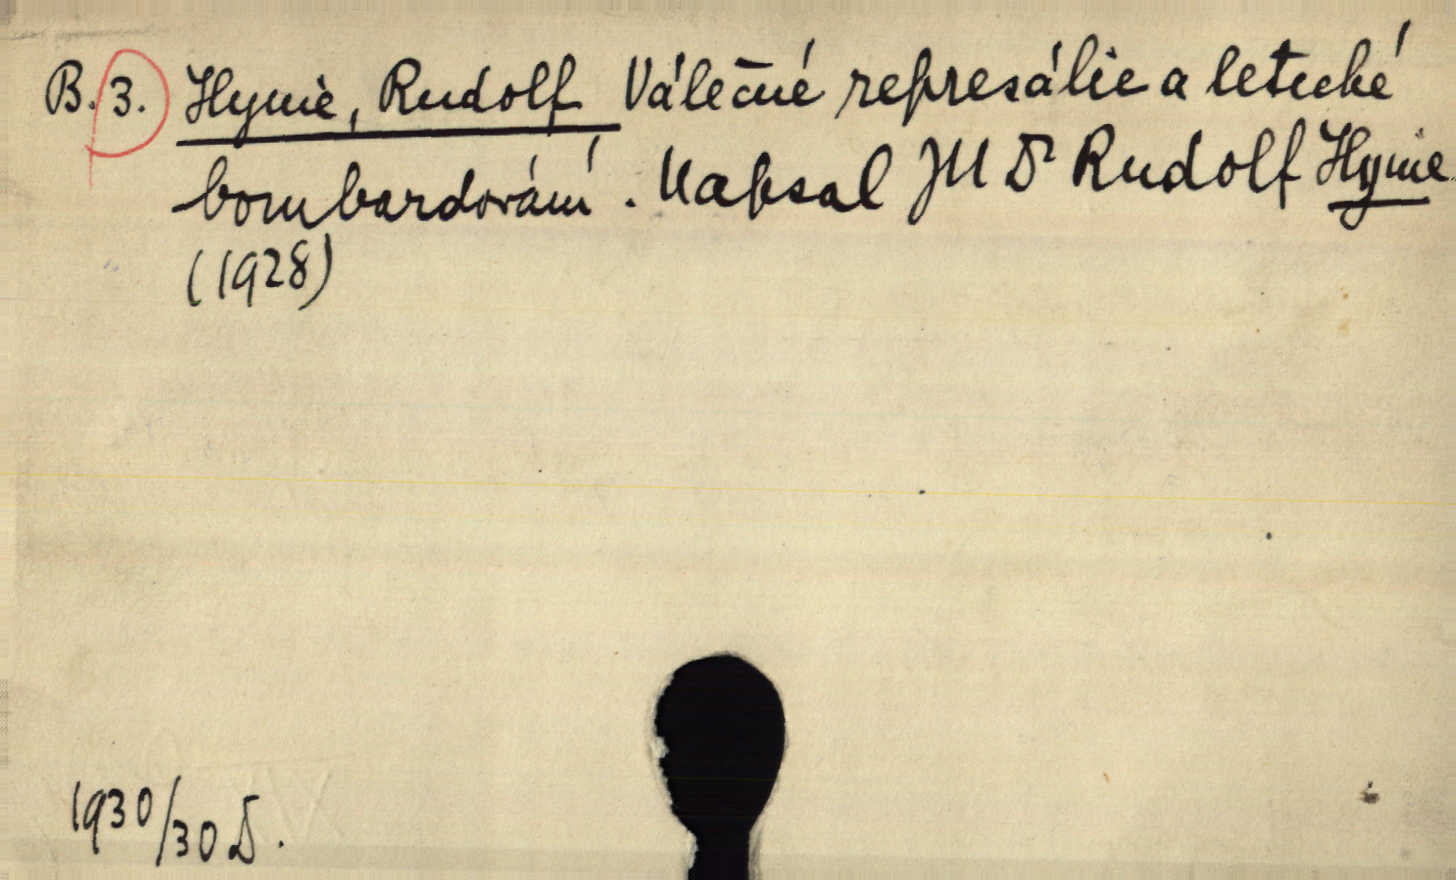 B. 3. Hynie, Rudolf Válečné represálie a letecké
bombardování. Napsal JUDr Rudolf Hynie.
(1928)
1930/30 D.